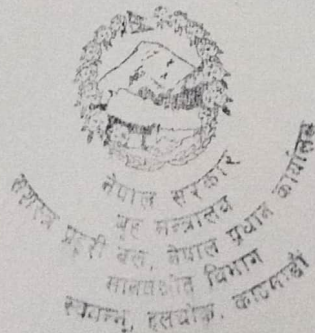 नेपाल सरकार
गृह मन्त्रालय
सशस्त्र प्रहरी बल, नेपाल प्रधान कार्यालय
मानवश्रोत विभाग
हलचोक, काठमाडौं